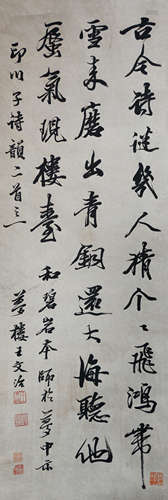 古今詩從幾人猜个个飛鴻帶
雪來磨出青銅還大海聽他
蜃氣現樓臺 和碧岩本師於夢中示
即川子詩韻二首之一
夢樓王文治